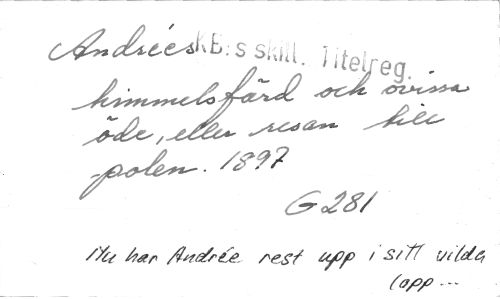 Andrées KB:s skill. Titelreg.
himmelsfärd och ovissa
öde, eller resan till
polen. 1897
G 281
Nu har Andrée rest upp i sitt vilda
(opp...